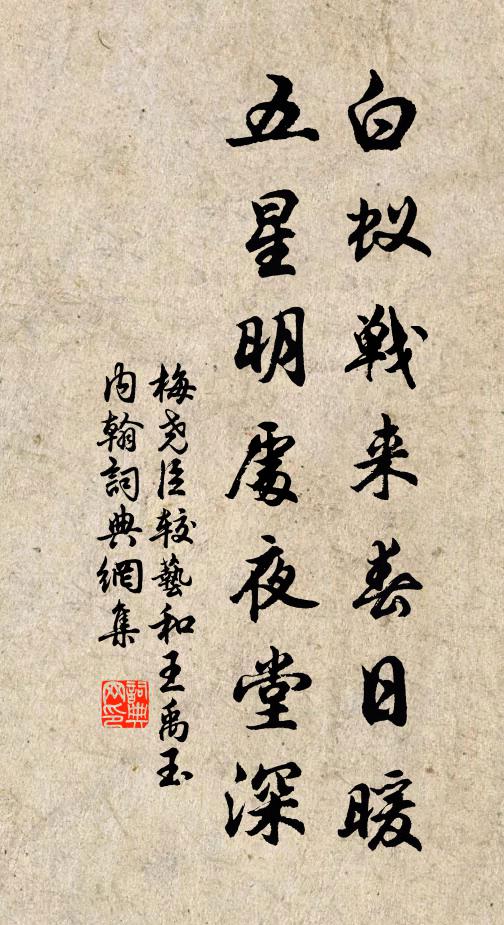 白蚁戦来春日暖
五星明處夜堂深
梅尧臣较藝和王禹玉
内翰詞典網集
詞典网印